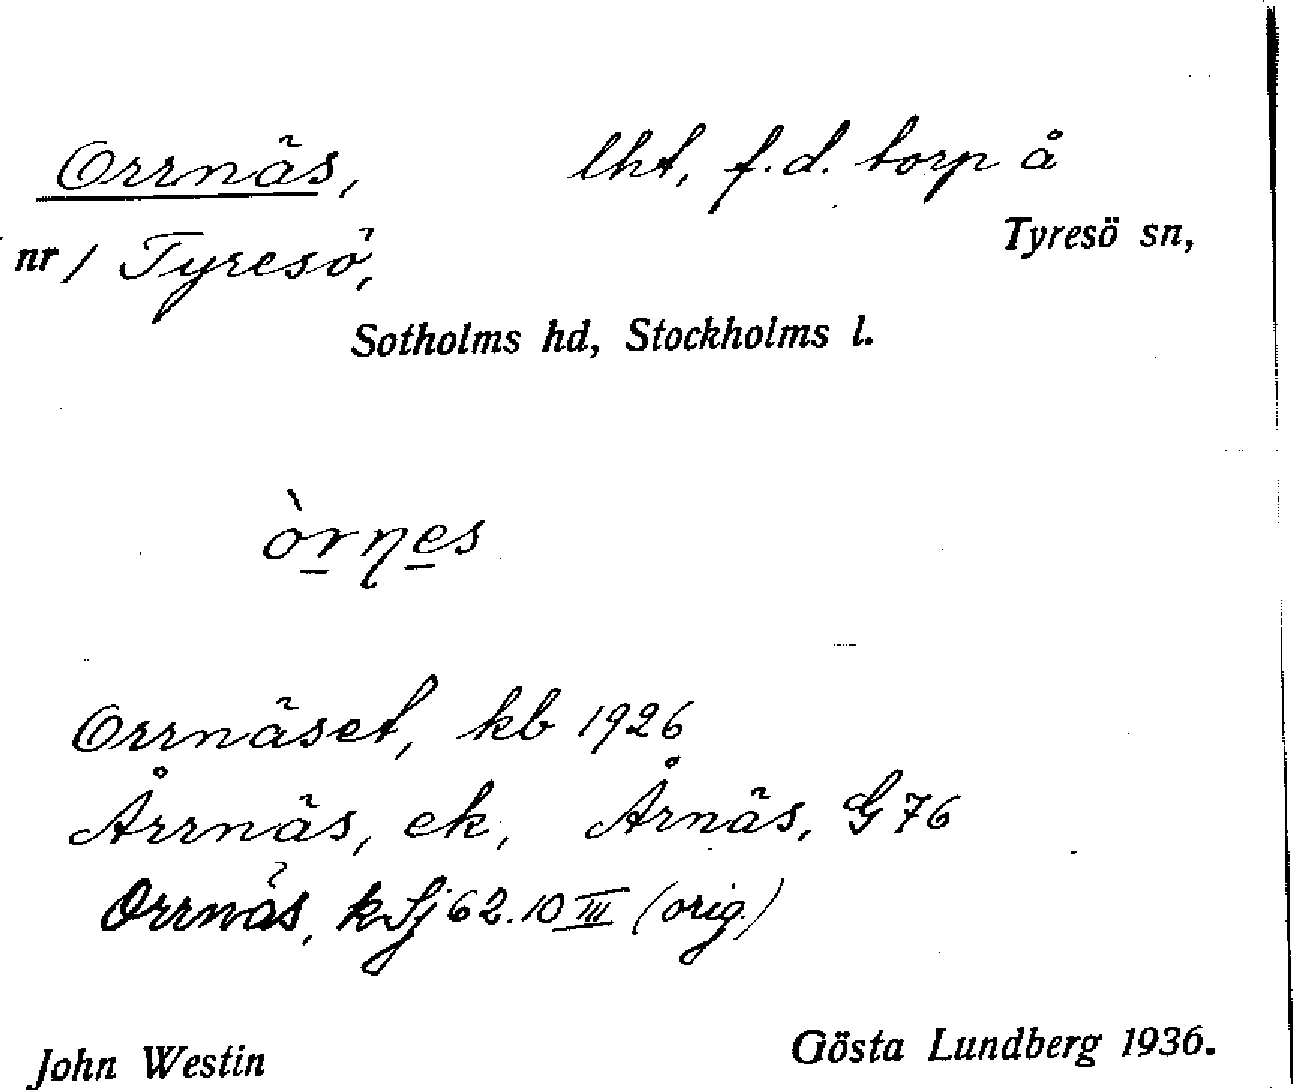 Orrnäs, lht, f.d. torp å
Tyresö sn,
nr 1 Tyresö,
Sotholms hd, Stockholms l.
òrṇes
Orrnäset, kb 1926
Årrnäs, ek, Årnäs, G 76
Orrnäs, k Sj 62.10 III (orig.)
John Westin Gösta Lundberg 1936.